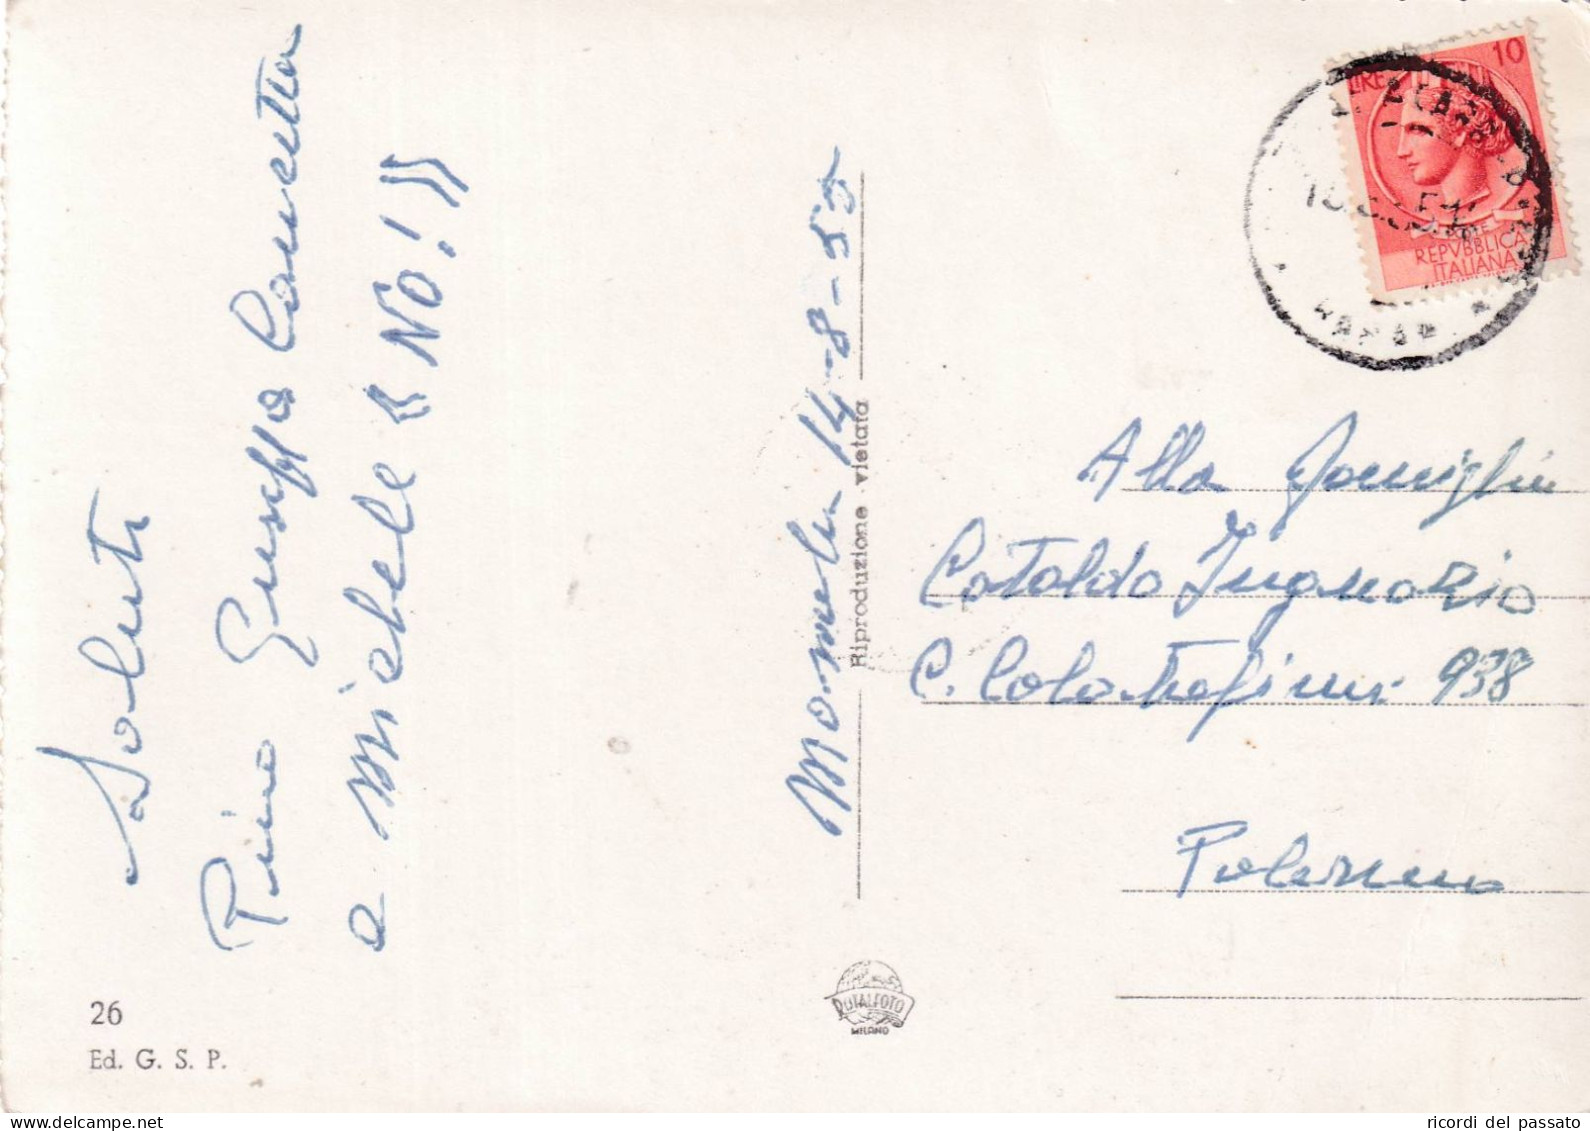 Saluti
Pino Giuseppa Concetta
e Michele « No! »
14-8-55
Riproduzione vietata
LIRE 10
REPVBBLICA
ITALIANA
Alla Famiglia
Cataldo Ignazio
C. Calatafimi 938
Palermo
ROTALFOTO
MILANO
26
Ed. G. S. P.
ricordi del passato